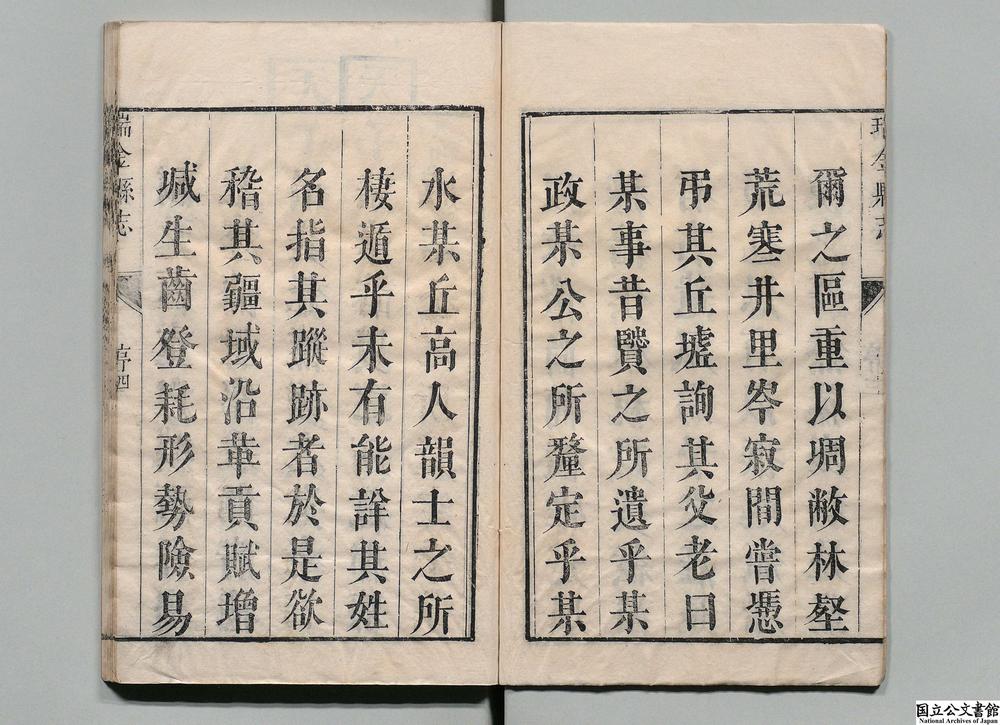 瑞金縣志
爾之區重以堋敝林壑
荒寒井里岑寂間嘗憑
弔其丘墟詢其父老曰
某事昔賢之所遺乎某
政某公之所釐定乎某
水某丘高人韻士之所
棲遁乎未有能詳其姓
名指其蹤跡者於是欲
稽其疆域沿革貢賦增
喊生齒登耗形勢險易
瑞金縣志
序四
国立公文書館
National Archives of Japan